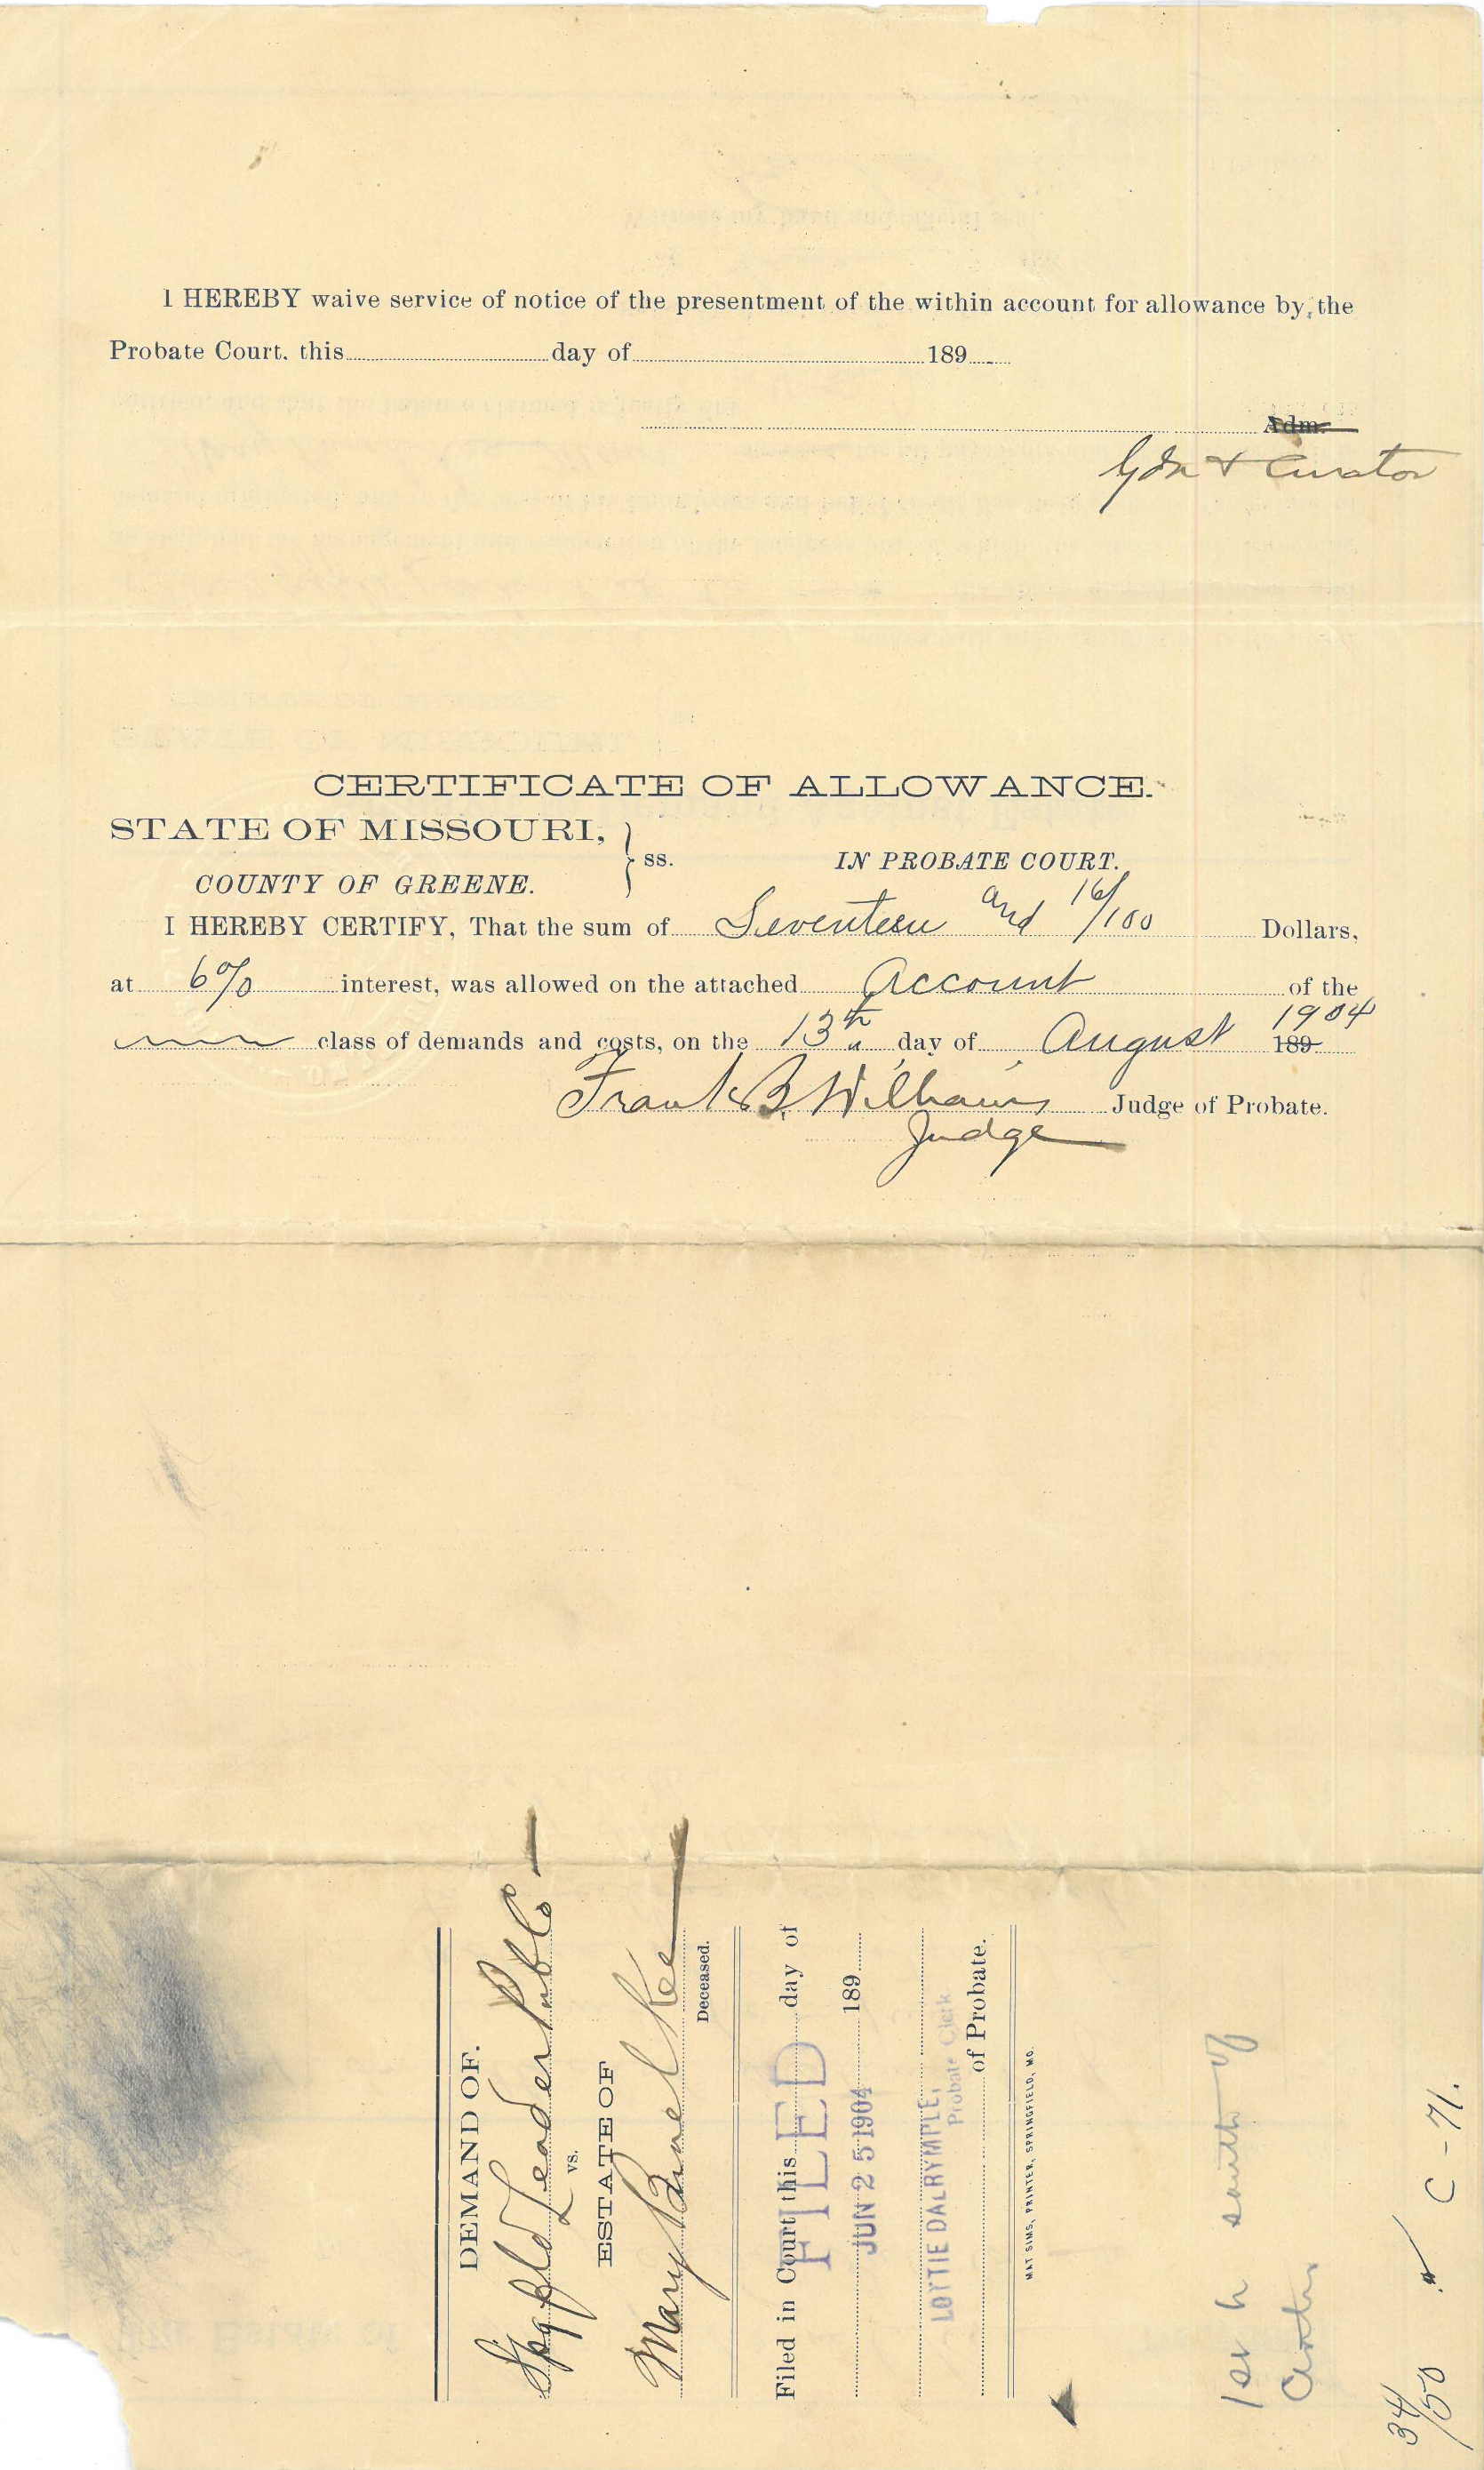 I HEREBY waive service of notice of the presentment of the within account for allowance by, the
Probate Court. this day of 189
Adm.
Gdn & Curator
CERTIFICATE OF ALLOWANCE.
STATE OF MISSOURI,
COUNTY OF GREENE.
} ss.
IN PROBATE COURT.
I HEREBY CERTIFY, That the sum of Seventeen and 16/100 Dollars,
at 6% interest, was allowed on the attached Account of the
class of demands and costs, on the 13th day of August 1904 189
Frank B. Williams Judge of Probate.
Judge
DEMAND OF.
Spgfld Leader Pub Co
vs.
ESTATE OF
Mary Kee
Deceased.
Filed in Court this day of
FILED
189
JUN 25 1904
LOTTIE DALRYMPLE,
Probate Clerk
of Probate.
MAT SIMS, PRINTER, SPRINGFIELD, MO.
1st h south of
34/50 C-71.